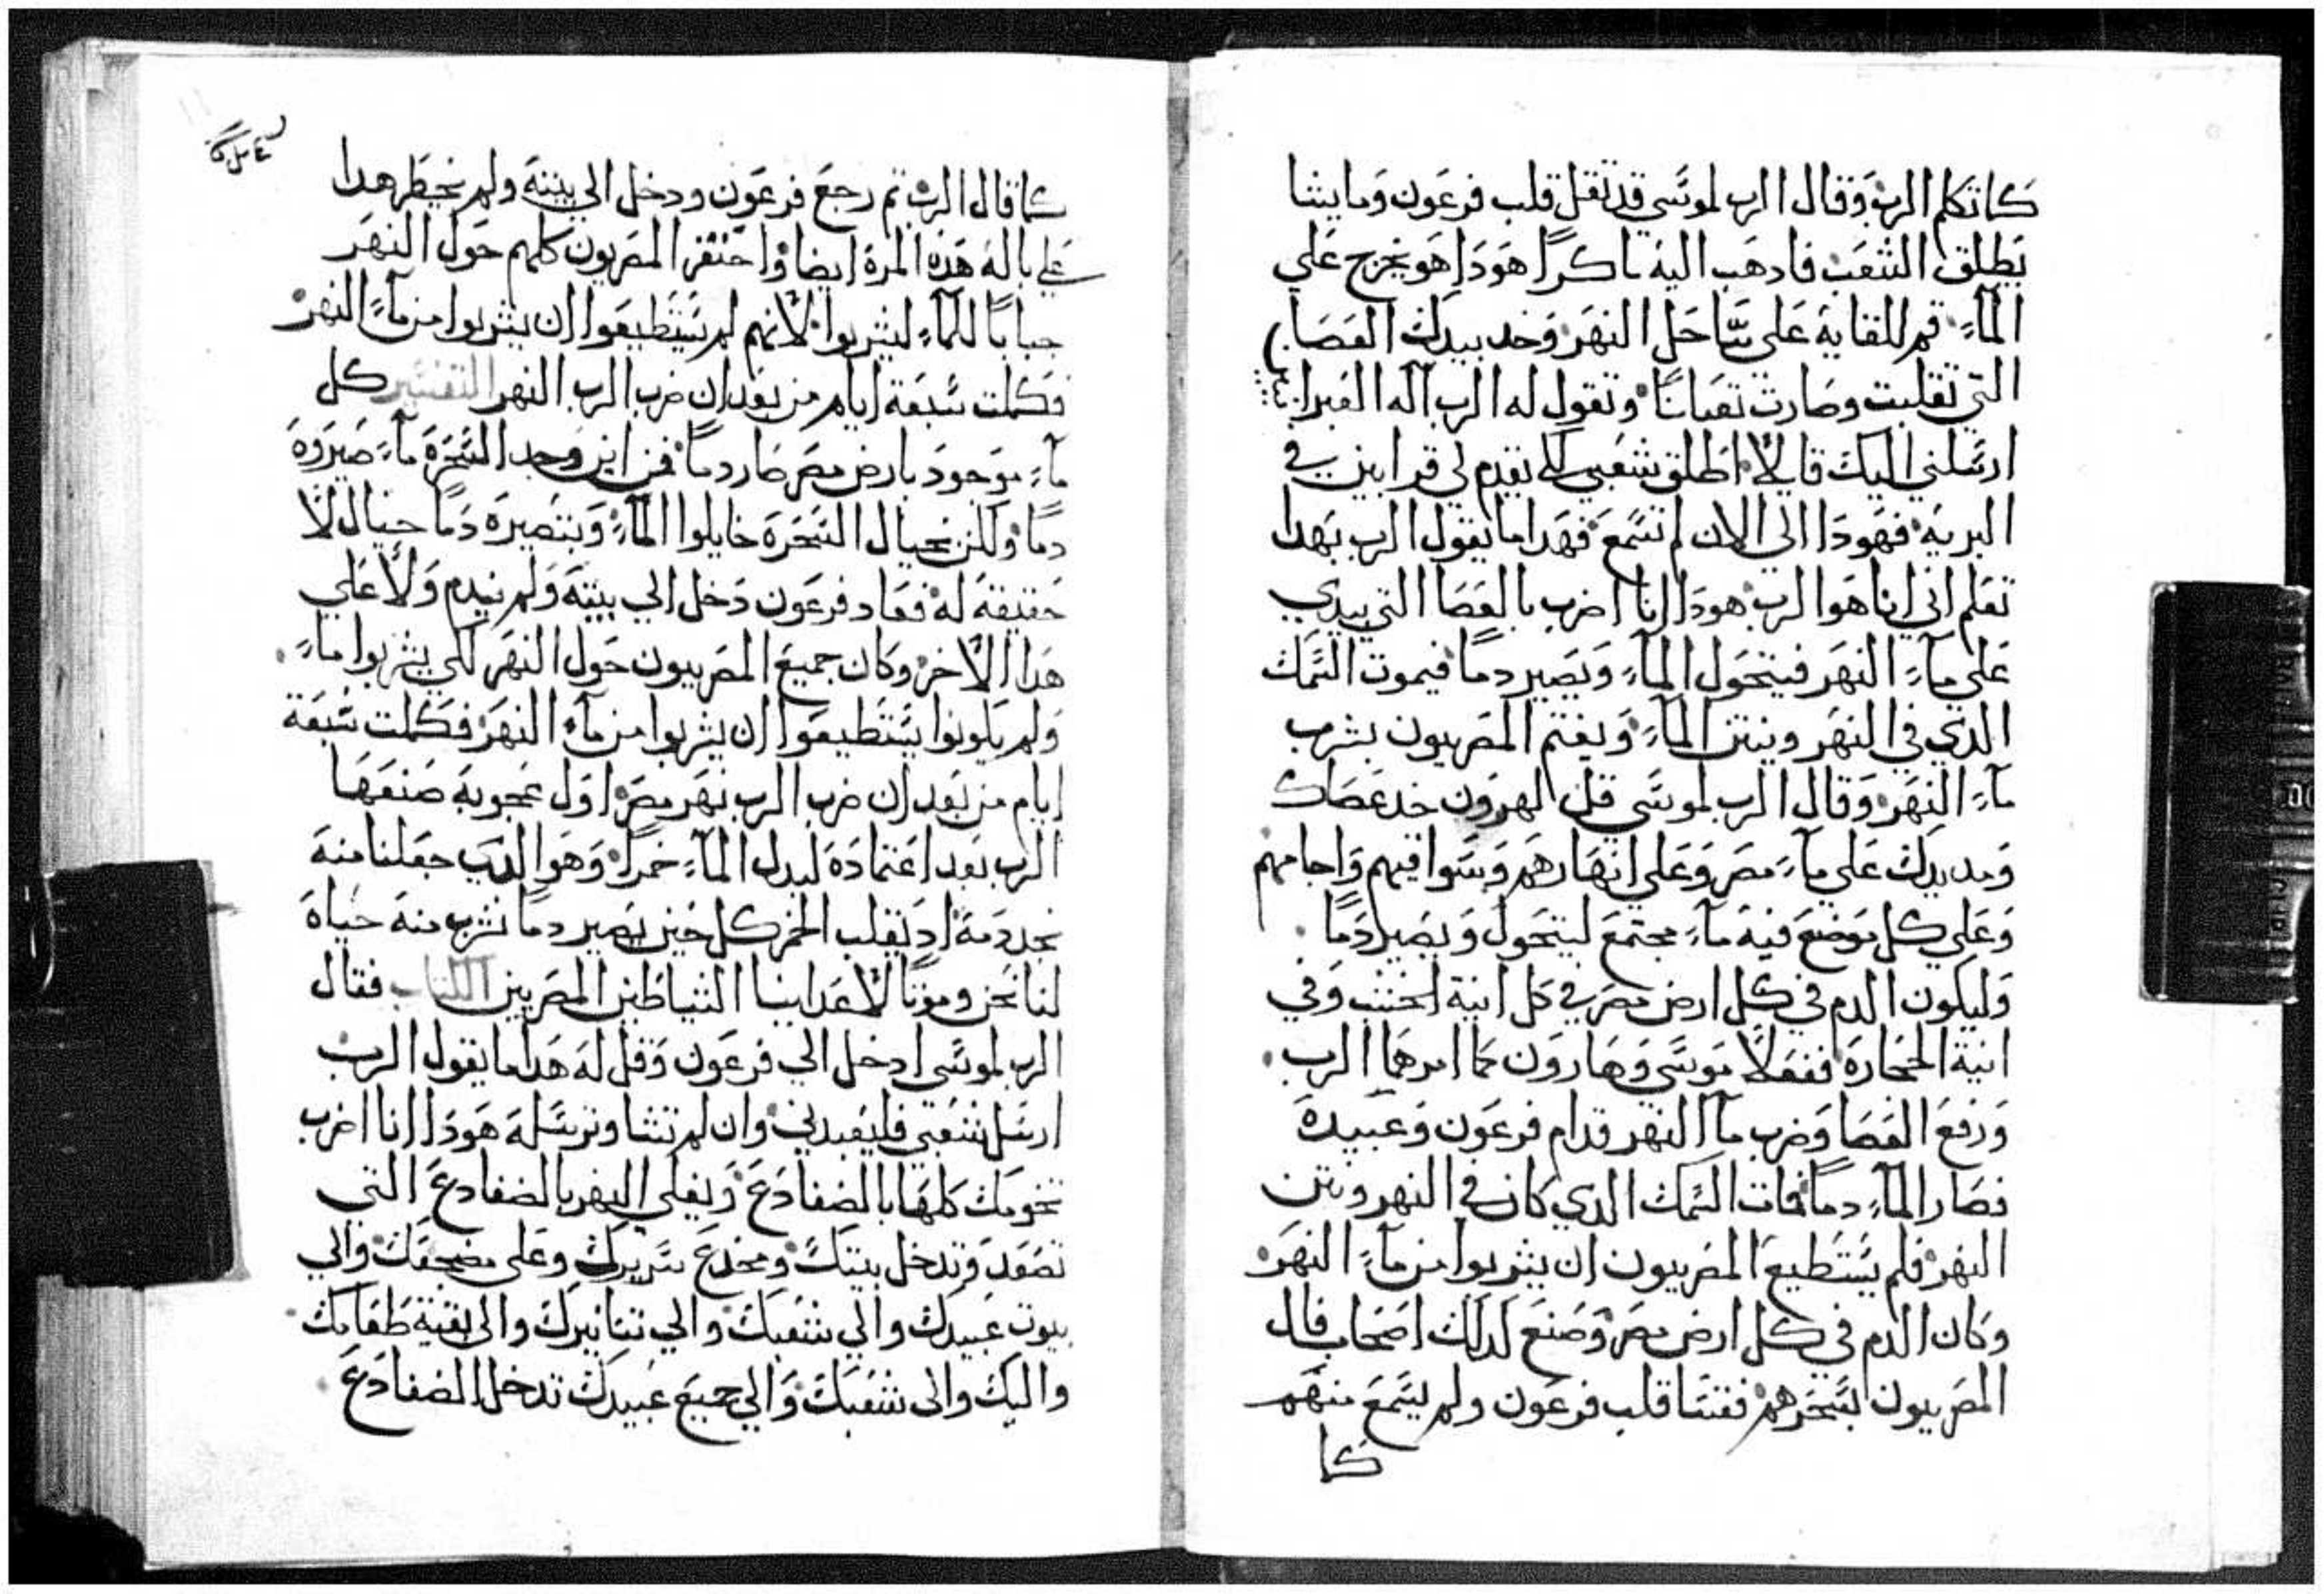 كما تكلم الرب وقال الرب لموسي قد تقل قلب فرعون وما يشا
يطلق الشعب فادهب اليه باكرا هودا هو يخرج علي
المآء قم للقايه علي ساحل النهر وخد بيدك العصا
التي تقلبت وصارت تعبانا وتقول له الرب اله العبرا
ارسلني اليك قايلا اطلق شعبي لكي يقدم لي قرابين في
البريه فهودا الي الان لم تسمع فهدا ما يقول الرب بهدا
تعلم اني انا هوا الرب هودا انا اضرب بالعصا التي بيدي
علي مآء النهر فيتحول المآء ويصير دما فيموت السمك
الدي في النهر وينتن المآء ويغتم المصريون بشرب
مآء النهر وقال الرب لموسي قل لهرون خد عصاك
ومد يدك علي مآء مصر وعلي انهارهم وسواقيهم واجامهم
وعلي كل موضع فيه مآء مجتمع ليتحول ويصير دما
وليكون الدم في كل ارض مصر في كل انية الخشب وفي
انية الحجاره ففعلا موسي وهارون كما امرهما الرب
ورفع العصا وضرب مآ النهر قدام فرعون وعبيده
فصار المآء دما فمات السمك الدي كان في النهر ونتن
النهر فلم يستطيع المصريون ان يشربوا من مآء النهر
وكان الدم في كل ارض مصر وصنع لدلك اصحاب فال
المصريون بسحرهم فقسا قلب فرعون ولم يسمع منهم
كما
كما قال الرب تم رجع فرعون ودخل الي بيته ولم يخطر هدا
علي باله هده المره ايضا واحتفر المصريون كلهم حول النهر
جبابا للمآء ليشربوا لانهم لم يستطيعوا ان يشربوا من مآء النهر
فكملت سبعة ايام من بعد ان ضرب الرب النهر التفسير كل
مآء موجود بارض مصر صار دما فمن اين وجد السحره مآء صيروه
دما ولكن بحيال السحره خايلوا المآء وبتصيره دما حيال لا
حقيقه له فعاد فرعون دخل الي بيته ولم يندم ولا علي
هدا الاخر وكان جميع المصريون حول النهر لكي يشربوا مآء
ولم يكونوا يستطيعوا ان يشربوا من مآء النهر فكملت سبعة
ايام من بعد ان ضرب الرب نهر مصر اول عجوبه صنعها
الرب بعد اعتماده لبدل المآء خمرا وهو الدي جعلنا منه
بخد دمه اد يقلب الخمر كل حين يصير دما نشرب منه حياه
لنا نحن وموتا لاعداينا الشياطين المصريين الكتاب فقال
الرب لموسي ادخل الي فرعون وقل له هدا ما يقول الرب
ارسل شعبي فليعبدني وان لم تشا وترسله هودا انا اضرب
تخومك كلها بالضفادع ويغلي النهر بالضفادع التي
تصعد وتدخل بيتك ومخدع سريرك وعلي مضجعك والي
بيوت عبيدك والي شعبك والي تنانيرك والي بقية طعامك
واليك والي شعبك والي جميع عبيدك تدخل الضفادع